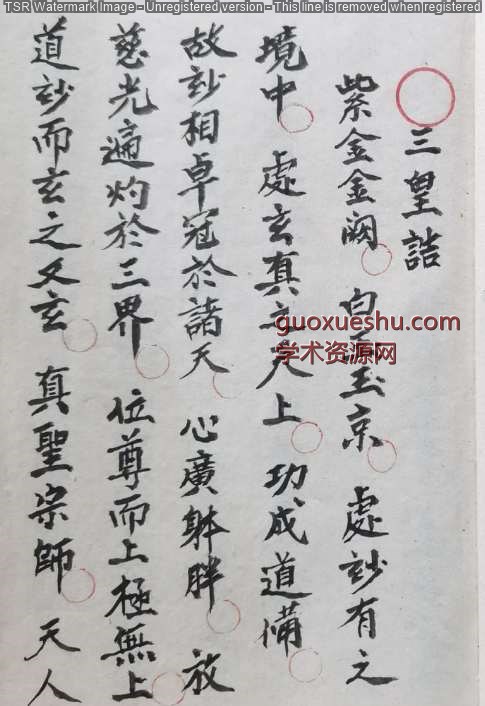 TSR Watermark Image - Unregistered version - This line is removed when registered
三皇誥
紫金金闕 白玉京 處玅有之
境中 處玄真之天上 功成道備
故玅相卓冠於諸天 心廣躰胖 放
慈光遍灼於三界 位尊而上極無上
道玅而玄之又玄 真聖宗師 天人
guoxueshu.com
学术资源网